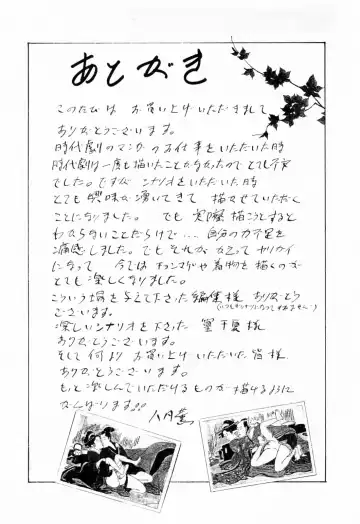 あとがき
このたびは お買い上げいただきまして
ありがとうございます。
時代劇のマンガのお仕事をいただいた時
時代劇は一度も描いたことがなかったのでとても不安
でした。ですが シナリオをいただいた時
とても興味が湧いてきて 描かせていただく
ことになりました。 でも 実際描こうとすると
わからないことだらけで… 自分の力不足を
痛感しました。でもそれが かえって カイカイ
になって 今では チョンマゲや着物を描くのが
とても楽しくなりました。
こういう場を与えて下さった編集様 ありがとう
ございます。
(いつもギリギリになってすみません…)
楽しいシナリオを下さった 様
ありがとうございます。
そして何より お買い上げいただいた 皆様
ありがとうございます。
もっと楽しんでいただけるものが描けるように
がんばります。
八月薫